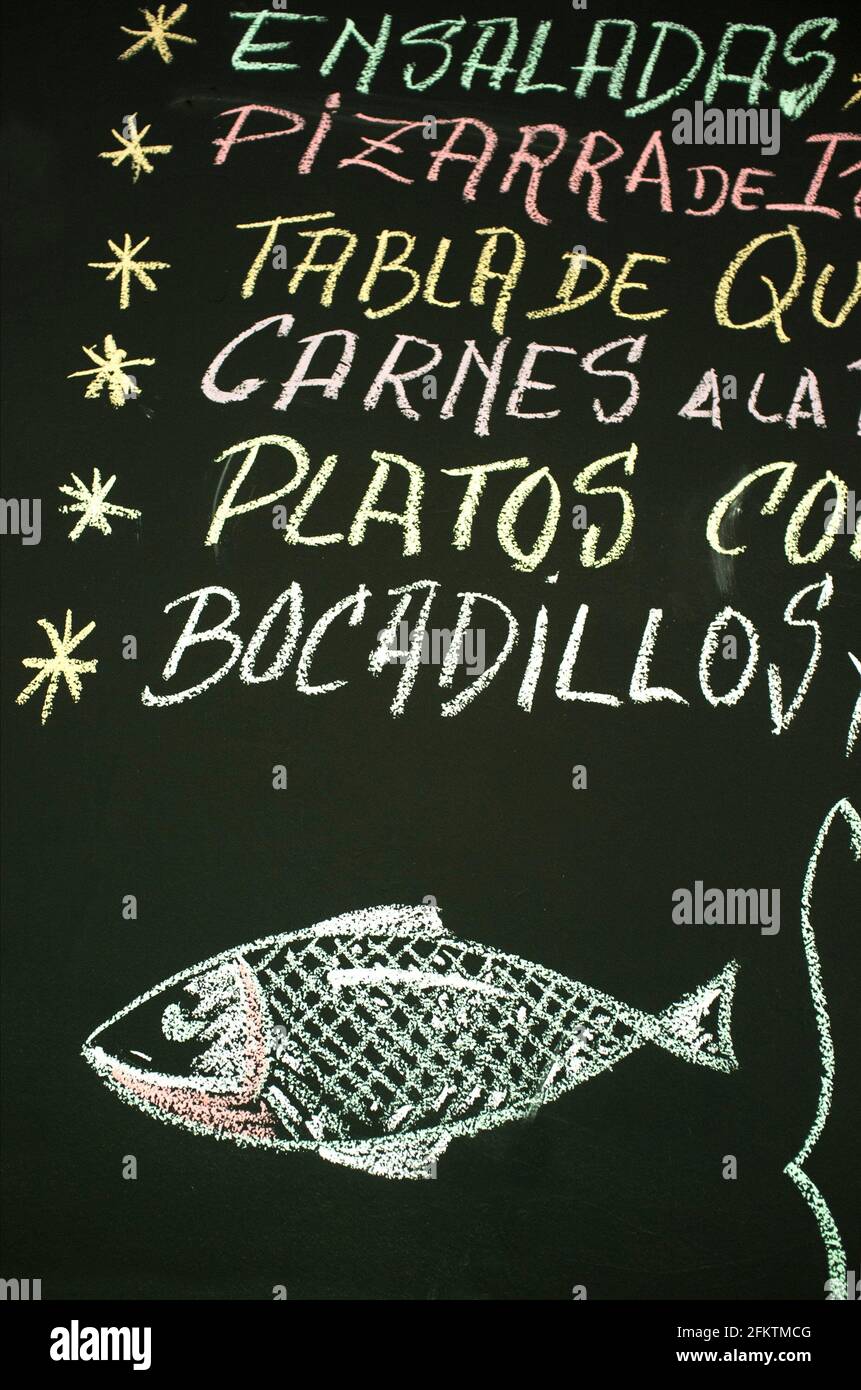 * ENSALADAS *
* PIZARRA DE
* TABLA DE
* CARNES A LA
* PLATOS
* BOCADILLOS
alamy
alamy
Image ID: 2FKTMCG
www.alamy.com